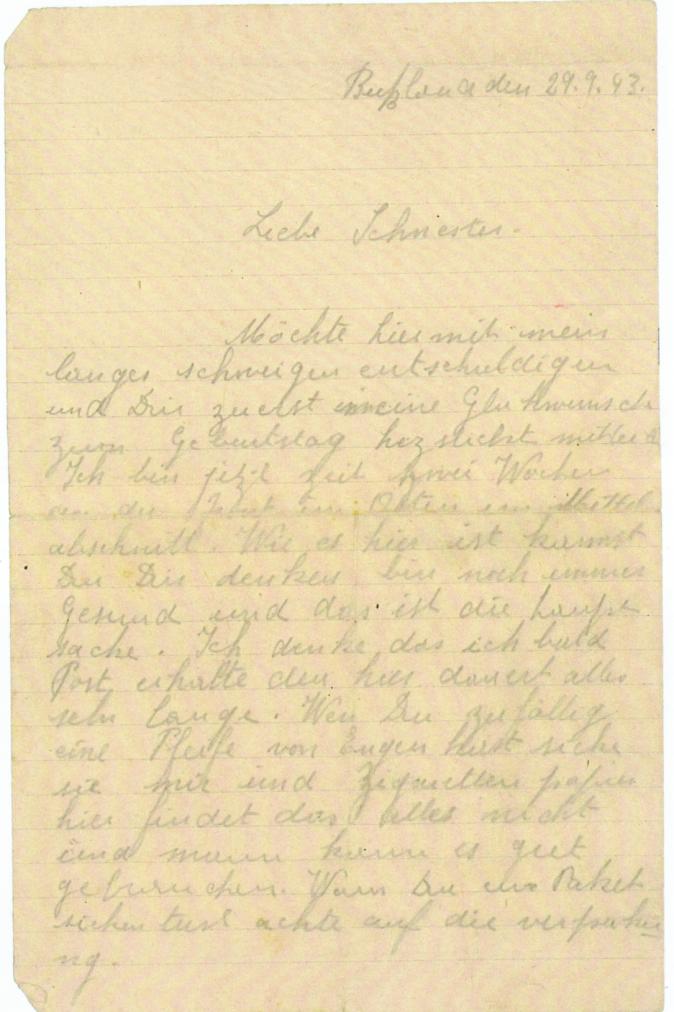 Rußland den 29.9.43.
Liebe Schwester.
Möchte hiermit mein
langes schweigen entschuldigen
und Dir zuerst meine Glukwunsch
zum Geburtstag
Ich bin jetzt seit zwei Wochen
an der Front im Osten im Mittel
abschnitt. Wie es hier ist kannst
Du Dir denken bin noch immer
Gesund und das ist die haupt
sache. Ich denke das ich bald
Post erhalte den hier dauert alles
sehr lange. Wen Du zufällig
eine Pfeife von Eugen hast sicke
sie mir und Zigaretten papier
hier findet das alles nicht
und mann kann es gut
gebrauchen. Wann Du ein Paket
sicken tust achte auf die verpaku
ng.